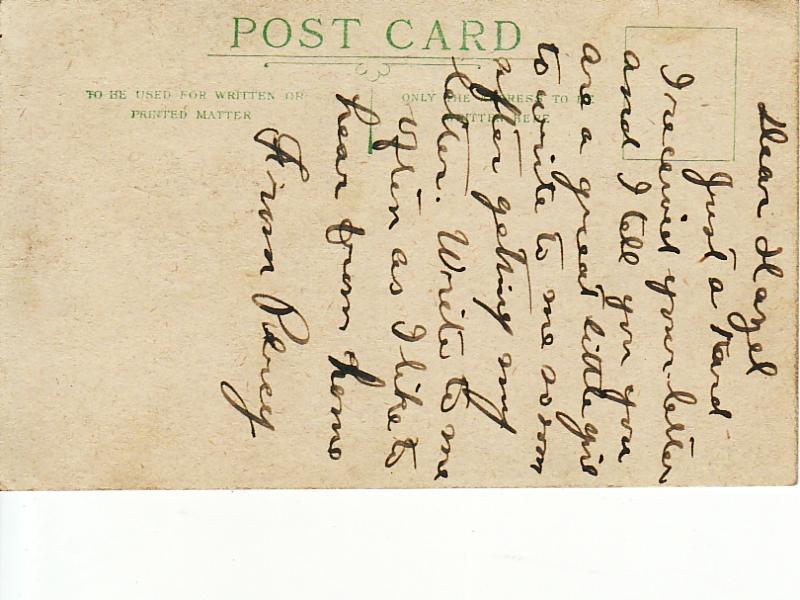 POST CARD
TO BE USED FOR WRITTEN OR
PRINTED MATTER
ONLY THE ADDRESS TO BE
WRITTEN HERE
Dear Hazel
Just a Kard
I received your letter
and I tell you you
are a great little girl
to write to me so soon
after getting my
letter. Write to me
often as I like to
hear from home
From Percy